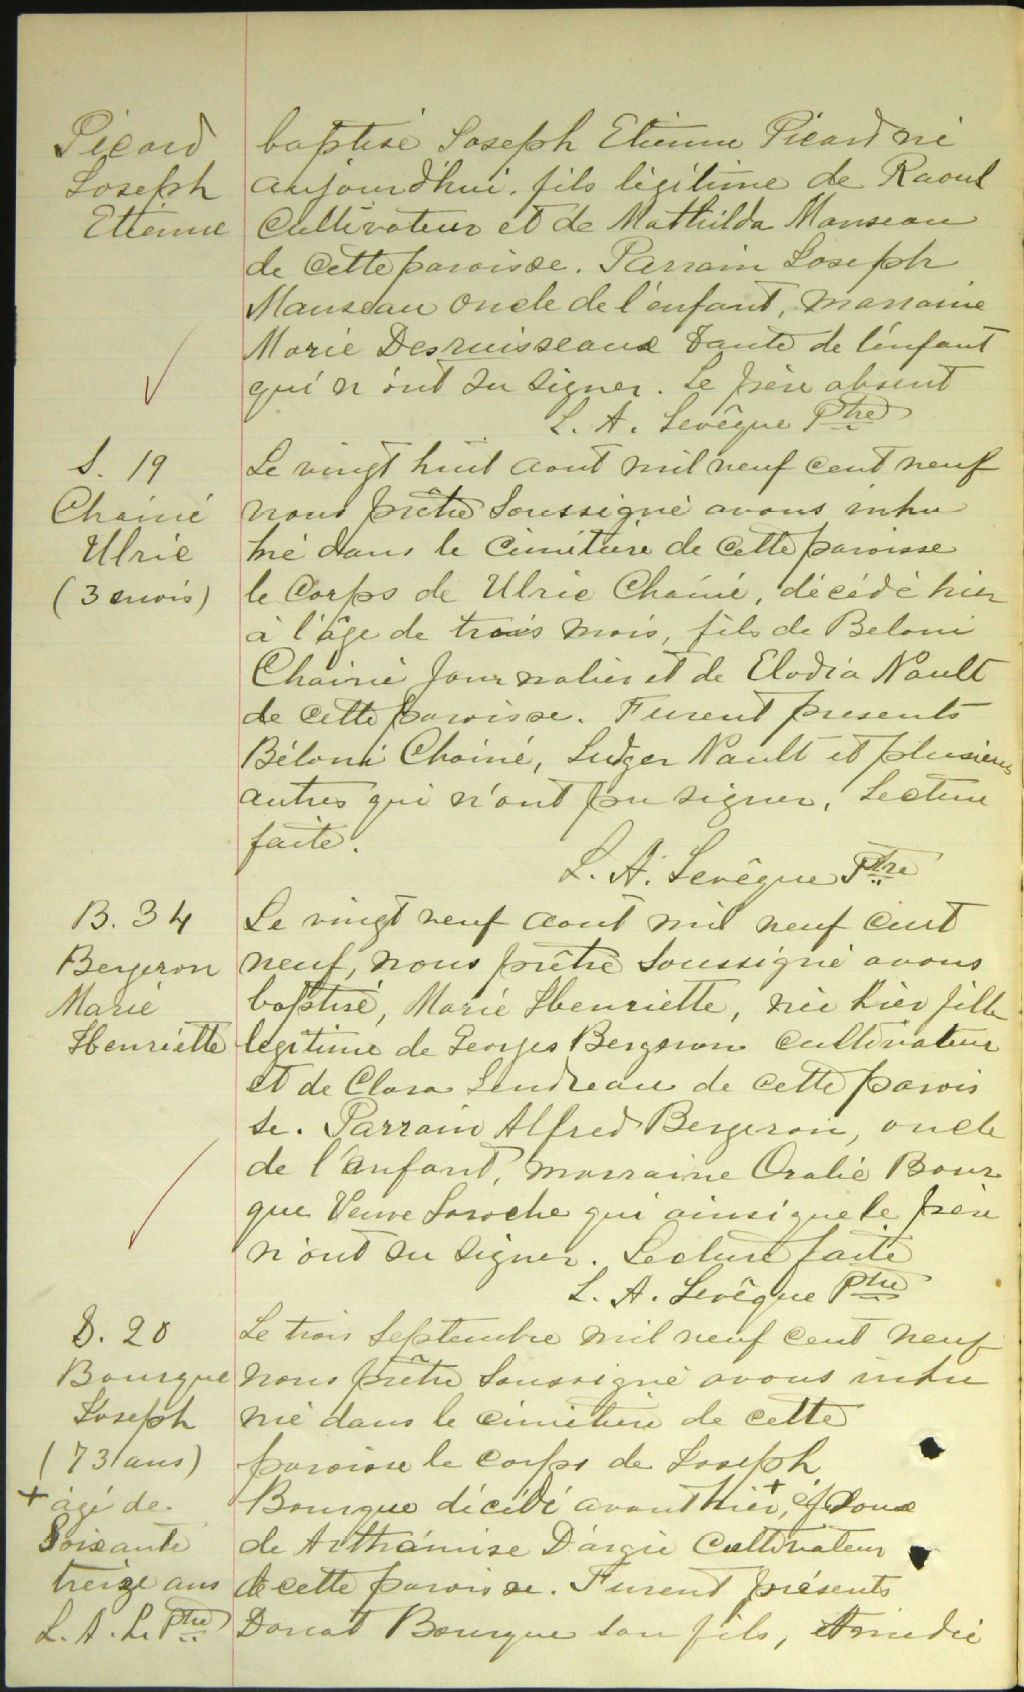 Picard
Joseph
Etienne
baptisé Joseph Etienne Picard né
aujourd'hui. fils légitime de Raoul
Cultivateur et de Mathilda Manseau
de cette paroisse. Parrain Joseph
Manseau oncle de l'enfant, marraine
Marie Desruisseaux tante de l'enfant
qui n'ont su signer. Le père absent
L. A. Levêque Ptre
S. 19
Chainé
Ulric
(3 mois)
Le vingt huit aout mil neuf cent neuf
nous prêtre soussigné avons inhu
mé dans le cimitière de cette paroisse
le corps de Ulric Chainé, décédé hier
à l'âge de trois mois, fils de Beloni
Chainé journalier et de Elodia Nault
de cette paroisse. Furent presents
Béloni Chainé, Ludger Nault et plusieurs
autres qui n'ont pu signer, Lecture
faite.
L. A. Levêque Ptre
B. 34
Bergeron
Marie
Henriette
Le vingt neuf aout mil neuf cent
neuf, nous prêtre soussigné avons
baptisé, Marie Henriette, née hier fille
legitime de Georges Bergeron cultivateur
et de Clara Lendreau de cette parois
se. Parrain Alfred Bergeron, oncle
de l'enfant, marraine Oralie Bour
que Veuve Laroche qui ainsi que le père
n'ont su signer. Lecture faite
L. A. Levêque Ptre
S. 20
Bourque
Joseph
(73 ans)
+ âgé de
soixante
treize ans
L. A. L. Ptre
Le trois Septembre mil neuf cent neuf
nous prêtre soussigné avons inhu
mé dans le cimetière de cette
paroisse le corps de Joseph
Bourque décédé avant hier +, époux
de Arthémise Dargie Cultivateur
de cette paroisse. Furent présents
Donat Bourque son fils, Amédé